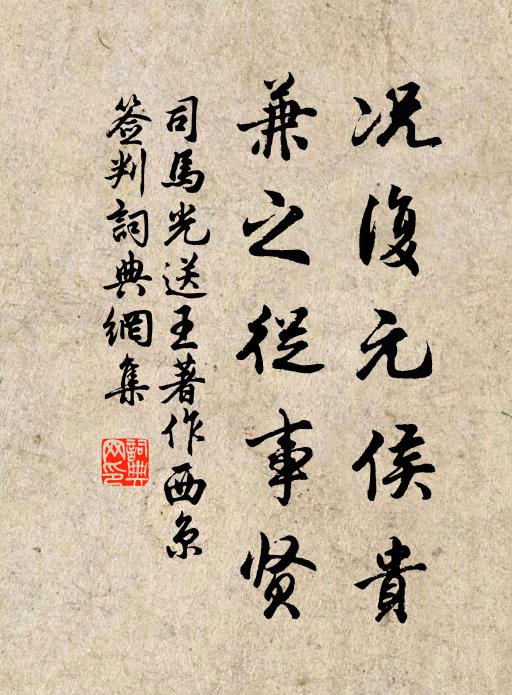 況復元侯貴
兼之從事贤
司馬光送王著作西京
簽判詞典網集
詞典网印